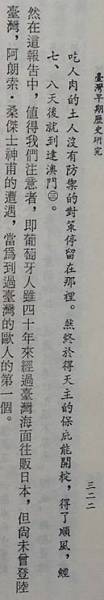 臺灣早期歷史研究
三二二
吃人肉的土人沒有防禦的對策停留在那裡。然終於得天主的保庇能開椗，得了順風，經
七、八天後就到達澳門㊂。
然在這報告中，值得我們注意者，即葡萄牙人雖四十年來經過臺灣海面往販日本，但尚未曾登陸
臺灣，阿朗索·桑傑士神甫的遭遇，當為到過臺灣的歐人的第一個。